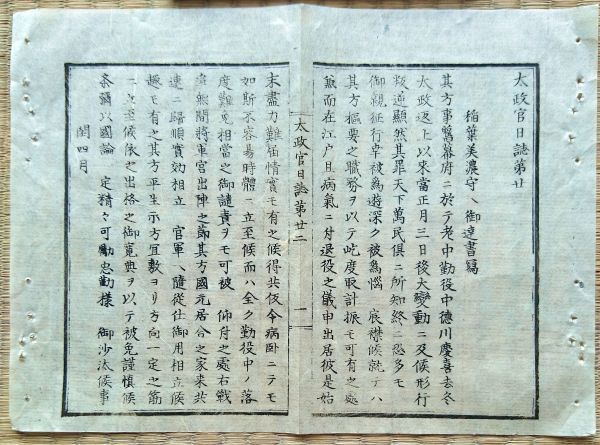 太政官日誌第廿
稲葉美濃守ヘ御達書寫
其方事舊幕府ニ於テ老中勤役中德川慶喜去冬
太政返上以來當正月三日後大變動ニ及候形行
叛逆顯然其罪天下萬民俱ニ所知終ニ恐多モ
御親征行幸被爲遊深ク被爲惱 宸襟候就テハ
其方樞要之職務ヲ以テ屹度取計振モ可有之處
無而在江戸且病氣ニ付退役之儀申出居彼是始
太政官日誌第廿二
一
末盡力難届情實モ有之候得共仮令病臥ニテモ
如斯不容易時體ニ立至候而ハ全ク勤役中ノ落
度難免相當之御譴責ヲモ可被 仰付之處右戰
爭無間將軍宮出陣之節其方國元居合之家來共
速ニ歸順實効相立 官軍ヘ隨從仕御用相立候
趣モ有之其方平生示方宜敷ヨリ方向一定之筋
ニ立至候依之出格之御寛典ヲ以テ被免謹愼候
条彌以國論一定精々可勵忠勤樣 御沙汰候事
閏四月